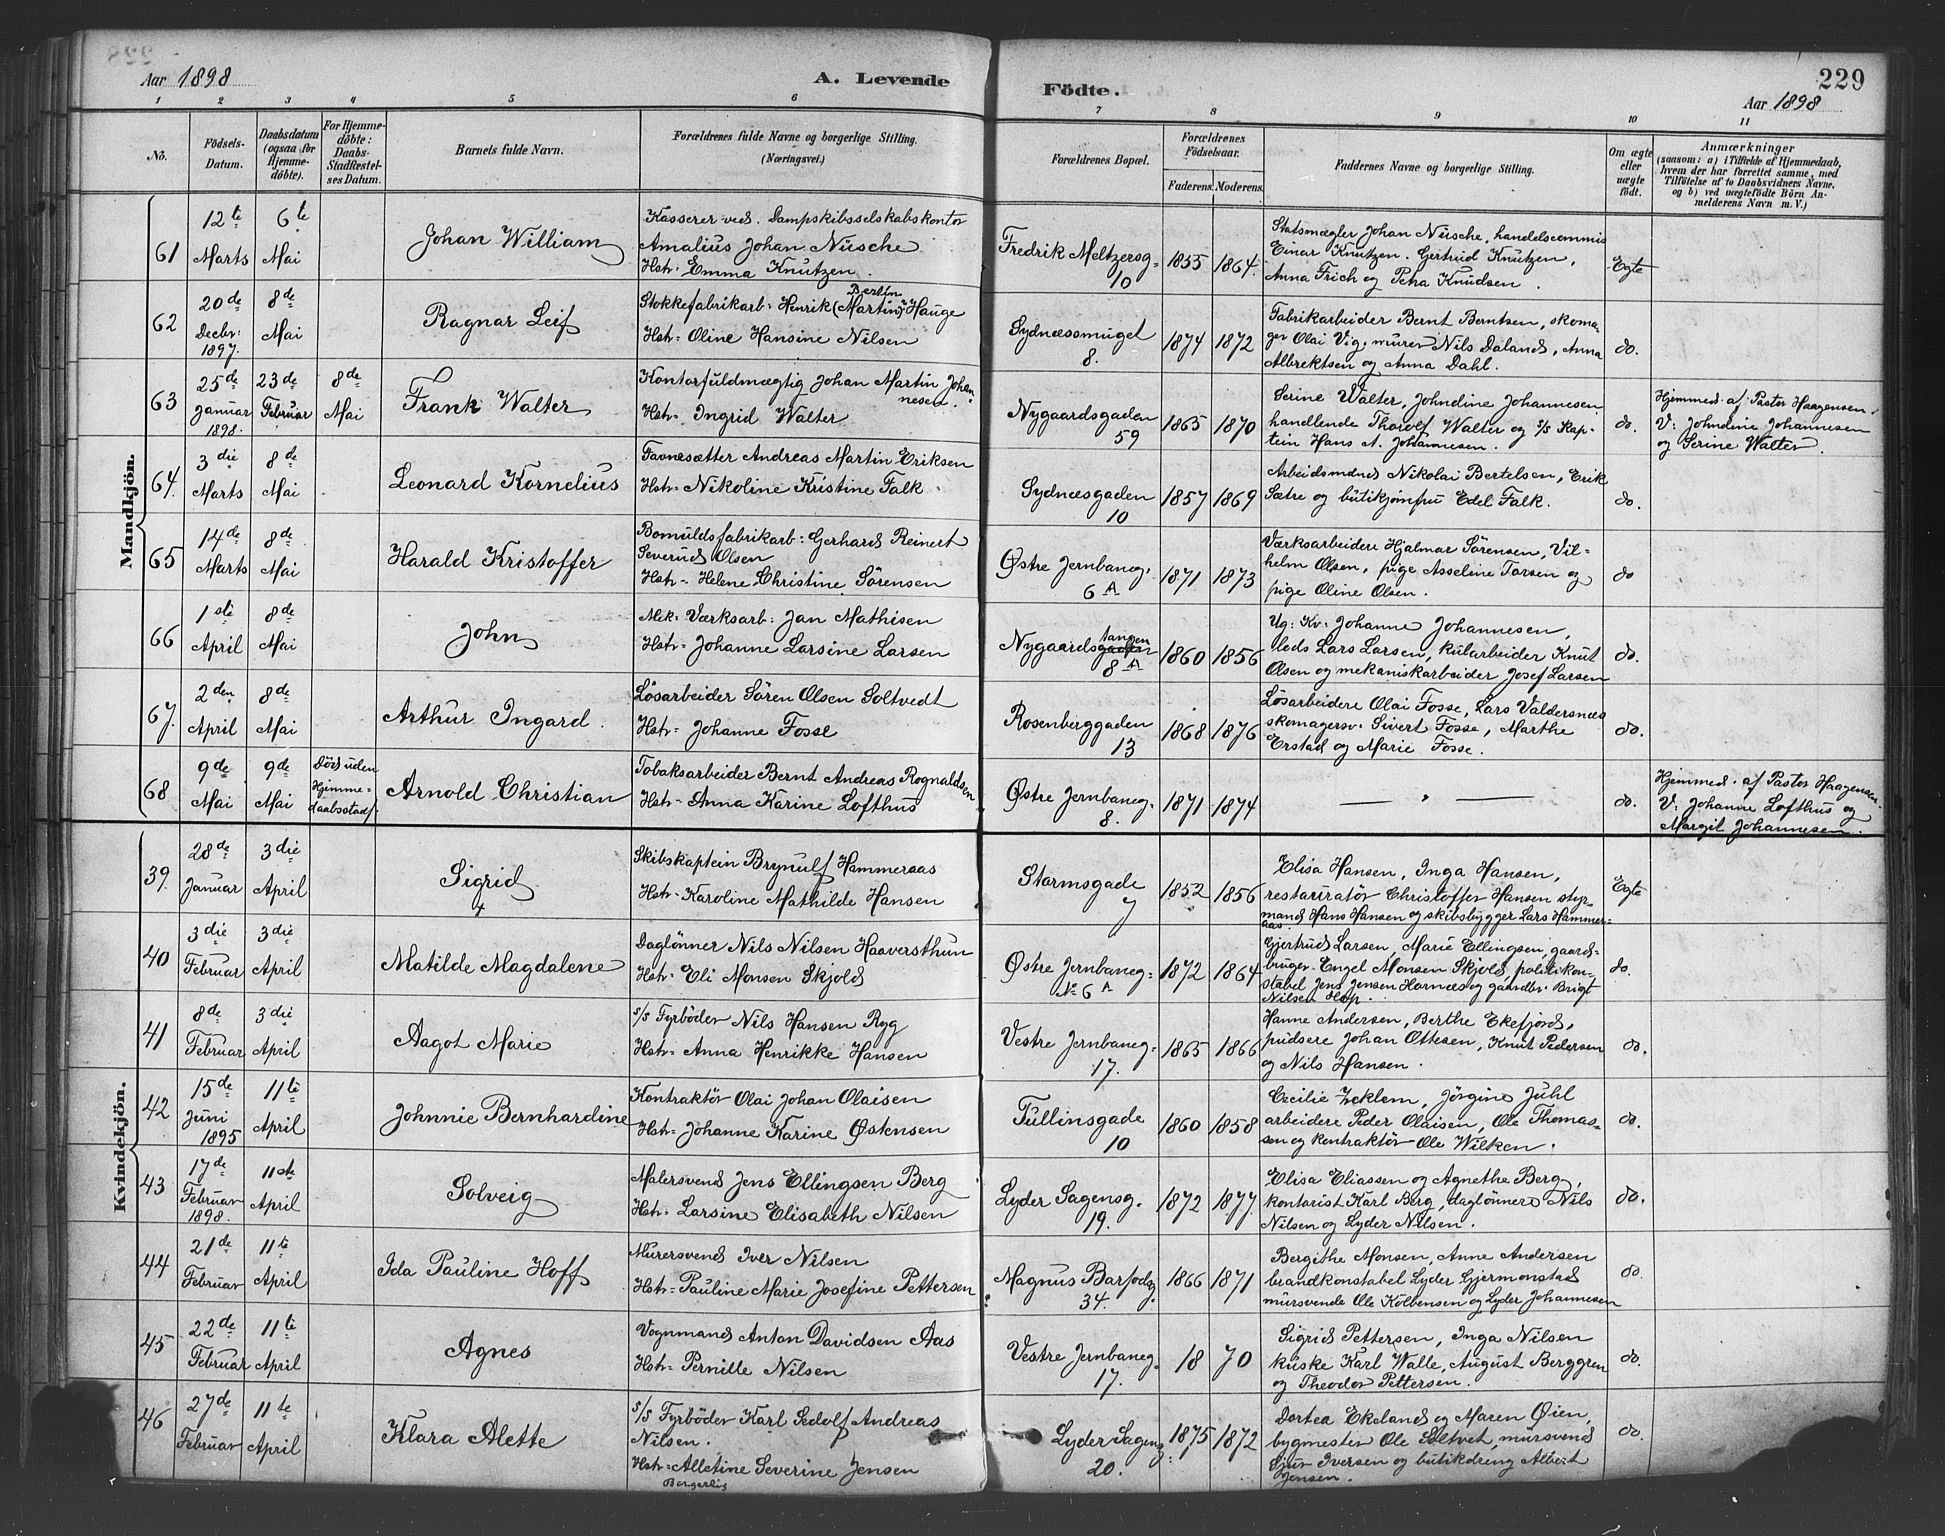 Aar 1898 A. Levende
Födte. 229
Aar 1898
1 2 3 4 5 6 7 8 9 10 11
No.
Födsels-Datum.
Daabsdatum (ogsaa for Hjemmedöbte).
For Hjemmedöbte: Daabs-Stadfæstelses Datum.
Barnets fulde Navn.
Forældrenes fulde Navne og borgerlige Stilling. (Næringsvei.)
Forældrenes Bopæl.
Forældrenes Födselsaar.
Faderens. Moderens.
Faddernes Navne og borgerlige Stilling.
Om ægte eller uægte födt.
Anmærkninger
(saasom: a) i Tilfælde af Hjemmedaab, hvem der har forrettet samme, med Tilföielse af to Daabsvidners Navne, og b) ved uægtefödte Börn Anmelderens Navn m. V.)
Mandkjön.
61 12te Marts 6te Mai
Johan William
Kasserer ved. Dampskibsselskabskontor
Amalius Johan Nüsche
Hstr: Emma Knutzen.
Fredrik Meltzersg. 10
1855 1864.
Statsmægler Johan Nüsche, handelscommis
Einar Knutzen. Gertrud Knutzen,
Anna Frich og Petra Knudsen.
Egte
62 20de Decbr: 1897. 8de Mai
Ragnar Leif
Stokkefabrikarb: Henrik (Martin) Hauge
Hstr: Oline Hansine Nilsen
Sydnæssmuget 8.
1874 1872
Fabrikarbeider Bernt Berntsen, skoma-
ger Olai Vig, murer Nils Daland, Anna
Albrektsen og Anna Dahl.
do.
63 25de Januar 1898. 23de Februar 8de Mai
Frank Walter
Kontorfuldmægtig Johan Martin Johan
nesen.
Hstr: Ingrid Walter
Nygaardsgaden 59
1865 1870
Serine Walter, Johndine Johannesen
handlende Thorolf Walter og s/s Kap-
tein Hans A. Johannesen.
do.
Hjemmed. af Pastor Haagensen.
V: Johndine Johannesen
og Serine Walter.
64. 3die Marts 8de Mai
Leonard Kornelius
Favnesætter Andreas Martin Eriksen
Hstr: Nikoline Kristine Falk
Sydnæsgaden 10
1857 1869
Arbeidsmænd Nikolai Bertelsen, Erik
Sætre og butikjomfru Edel Falk.
do.
65 14de Marts 8de Mai
Harald Kristoffer
Bomuldsfabrikarb: Gerhard Reinert
Severud Olsen
Hstr: Helene Christine Sørensen
Østre Jernbaneg. 6 A
1871 1873
Værksarbeidere Hjalmar Sørensen, Vil-
helm Olsen, pige Asseline Larsen og
pige Oline Olsen.
do
66 1ste April 8de Mai
John
Mek: Værksarb: Jan Mathisen
Hstr: Johanne Larsine Larsen
Nygaardstangen 8 A
1860 1856
Ug: Kv: Johanne Johannesen,
Leds Lars Larsen, kularbeider Knut
Olsen og mekaniskarbeider Josef Larsen
do.
67. 2den April 8de Mai
Arthur Ingard.
Løsarbeider Søren Olsen Soltvedt
Hstr: Johanne Fosse
Rosenberggaden 13
1868 1876
Løsarbeidere Olai Fosse, Lars Valdersnes
skomagersv: Sivert Fosse, Marthe
Erstad og Marie Fosse.
do.
68 9de Mai 9de Mai Död uden Hjemmedaabsstadf:
Arnold Christian
Tobaksarbeider Bernt Andreas Rognaldsen
Hstr: Anna Karine Lofthus
Østre Jernbaneg. 8.
1871 1874
— „ —
do.
Hjemmed. af Pastor Haagensen.
V: Johanne Lofthus og
Margit Johannesen.
Kvindekjön.
39. 28de Januar 3die April
Sigrid
Skibskaptein Brynulf Hammeraas
Hstr: Karoline Mathilde Hansen
Stormsgade 7
1852 1856
Elisa Hansen, Inga Hansen,
restauratør Christoffer Hansen styr-
mand Hans Hansen og skibsbygger Lars Hammer-
aas.
Egte
40 3die Februar 3die April
Matilde Magdalene
Daglønner Nils Nilsen Haaversthun
Hstr: Eli Monsen Skjold
Østre Jernbaneg. No 6 A
1872 1864
Gjertrud Larsen, Marie Ellingsen, gaard-
bruger Engel Monsen Skjold, politikon-
stabel Jens Jensen Hornæs og gaardbr. Brigt
Nilsen Hop.
do.
41 8de Februar 3die April
Aagot Marie
s/s Fyrbøder Nils Hansen Ryg
Hstr: Anna Henrikke Hansen
Vestre Jernbaneg. 17.
1865 1866
Hanne Andersen, Berthe Ekefjord,
pudsere Johan Ottesen, Knut Pedersen
og Nils Hansen.
do.
42 15de Juni 1895 11te April
Johnnie Bernhardine
Kontraktør Olai Johan Olaisen
Hstr: Johanne Karine Østensen
Tullinsgade 10
1860 1858
Cecilie Ireklem, Jørgine Juhl
arbeidere Peder Olaisen, Ole Thomas-
sen og kontraktør Ole Wilken.
do.
43 17de Februar 1898. 11te April
Solveig
Malersvend Jens Ellingsen Berg
Hstr: Larsine Elisabeth Nilsen
Lyder Sagensg. 19.
1872 1877.
Elisa Eliassen og Agnethe Berg,
kontorist Karl Berg, daglønnere Nils
Nilsen og Lyder Nilsen.
do.
44 21de Februar 11te April
Ida Pauline Hoff
Murersvend Iver Nilsen
Hstr: Pauline Marie Josefine Pettersen
Magnus Barfodsg. 34.
1866 1871
Bergithe Monsen, Anne Andersen
brandkonstabel Lyder Gjermonstad
mursvende Ole Kolbensen og Lyder Johannesen
do.
45 22de Februar 11te April
Agnes
Vognmand Anton Davidsen Aas
Hstr: Pernille Nilsen
Vestre Jernbaneg. 17.
18 70
Sigrid Pettersen, Inga Nilsen
kuske Karl Walle, August Berggren
og Theodor Pettersen.
do.
46 27de Februar 11te April
Klara Alette
s/s Fyrbøder Karl Sedolf Andreas
Nilsen.
Hstr: Alletine Severine Jensen
Borgerlig
Lyder Sagensg. 20.
1875 1872
Dortea Ekeland og Maren Øien,
bygmester Ole Soltvet, mursvend
Sjur Iversen og butikdreng Albert
Jensen.
do.